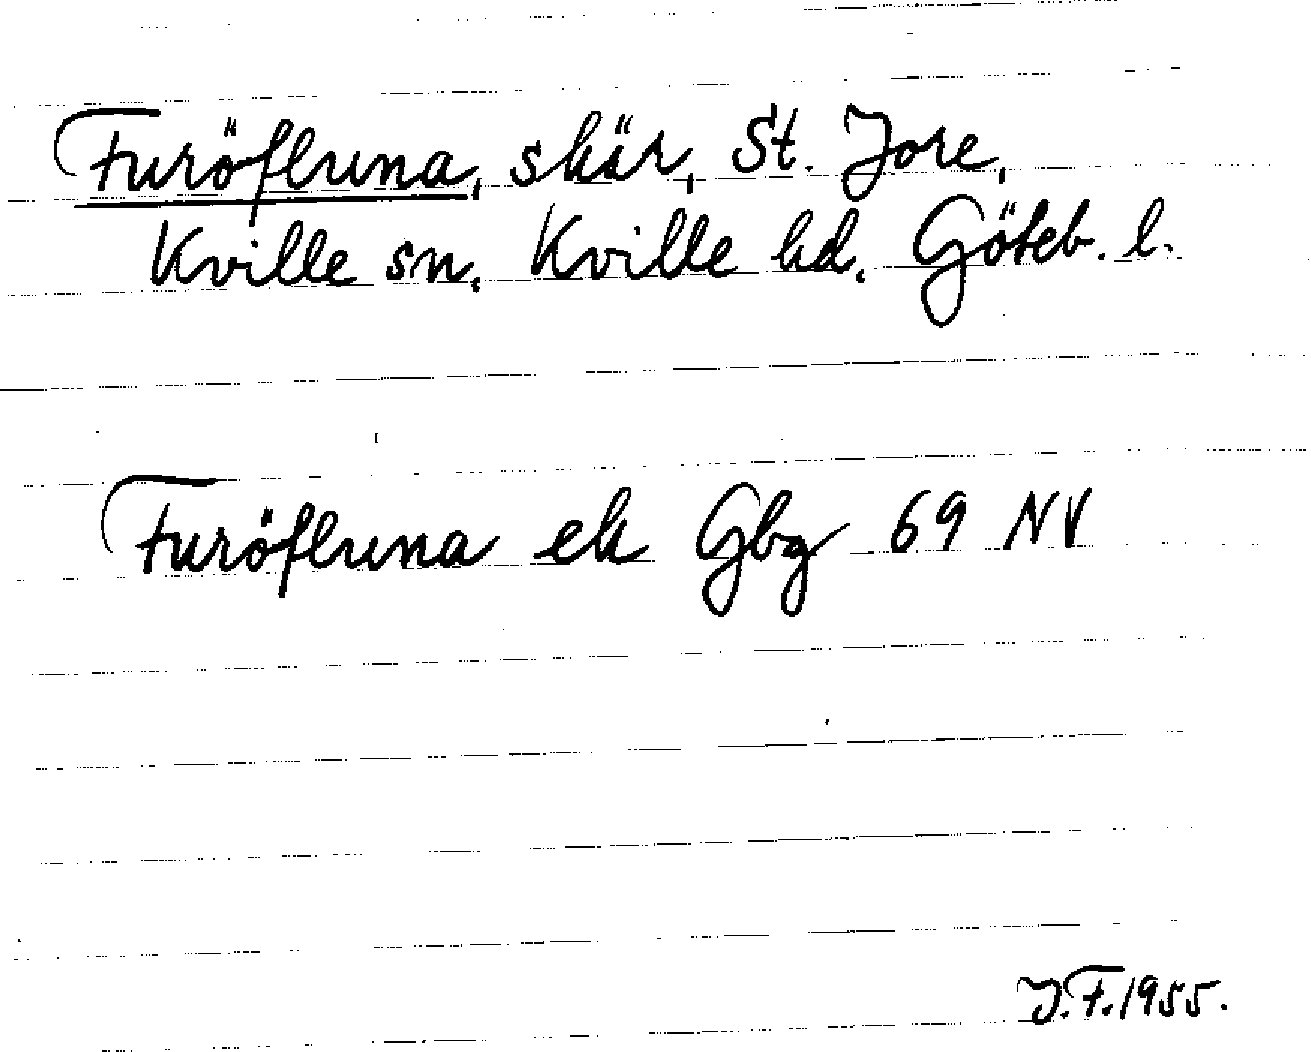 Furöfluna, skär, St. Jore,
Kville sn. Kville hd. Göteb. l.
Furöfluna ek Gbg 69 NV
J.F. 1955.